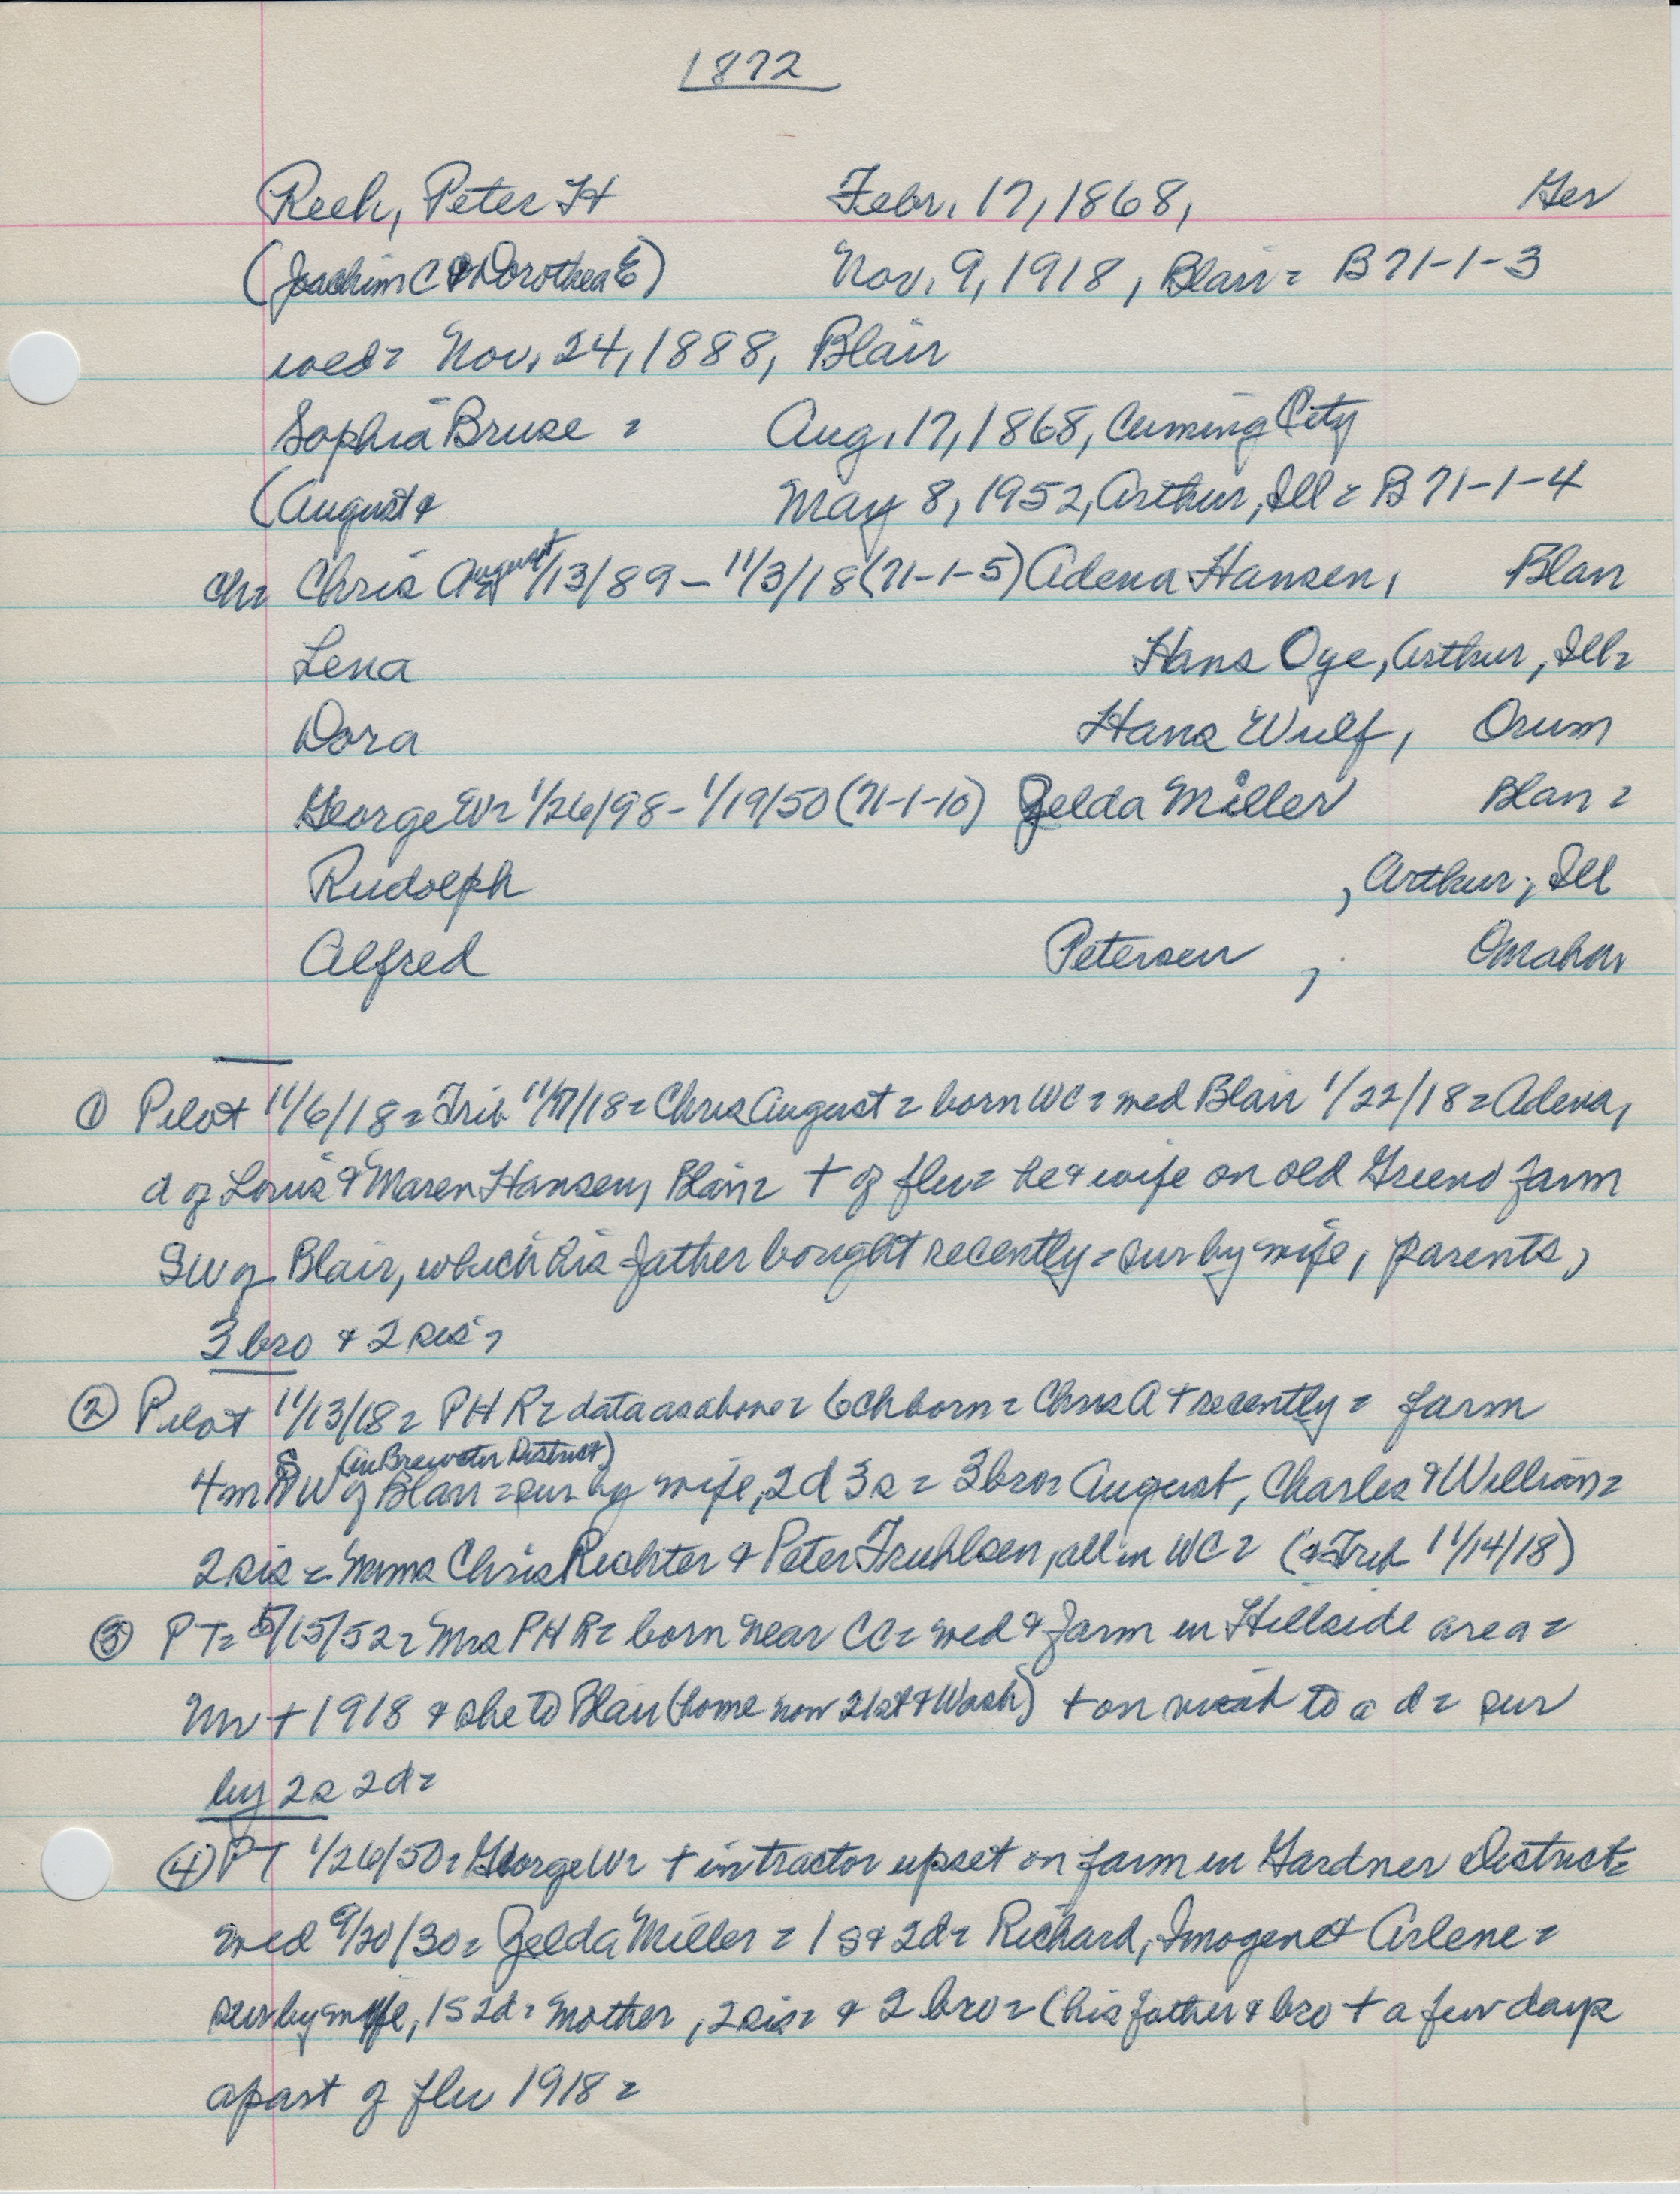 1872
Reeh, Peter H Febr. 17, 1868, Ger
(Joachim C & Dorothea E) Nov. 9, 1918, Blair = B 71-1-3
wed = Nov. 24, 1888, Blair
Sophia Bruse = Aug. 17, 1868, Cuming City
(August & May 8, 1952, Arthur, Ill = B 71-1-4
ch = Chris August /13/89 - 11/3/18 (71-1-5) Adena Hansen, Blair
Lena Hans Oye, Arthur, Ill =
Dora Hans Wulf, Orum
George W = 1/26/98 - 1/19/50 (71-1-10) Zelda Miller Blair =
Rudolph , Arthur, Ill
Alfred Petersen , Omaha
① Pilot 11/6/18 = Trib 11/7/18 = Chris August = born WC = wed Blair 1/22/18 = Adena,
d of Louis & Maren Hansen, Blair = + of flu = he & wife on old farm
SW of Blair, which his father bought recently = sur by wife, parents,
3 bro & 2 sis =
② Pilot 11/13/18 = PHR = data as above = 6 ch born = Chris A + recently = farm
4 m SW of Blair (in Brewster District) = sur by wife, 2 d 3 s = 3 bro = August, Charles & William =
2 sis = Mmes Chris Richter & Peter Fruhlsen, all in WC = (& Trib 11/14/18)
③ PT = 5/15/52 = Mrs PHR = born near CC = wed & farm in Hillside area =
Mr + 1918 & she to Blair (home now 21st & Wash) + on visit to a d = sur
by 2 s 2 d =
④ PT 1/26/50 = George W = + in tractor upset on farm in Gardner District =
wed 9/20/30 = Zelda Miller = 1 s & 2 d = Richard, Imogene & Arlene =
sur by wife, 1 s 2 d = mother, 2 sis = & 2 bro = (his father & bro + a few days
apart of flu 1918 =